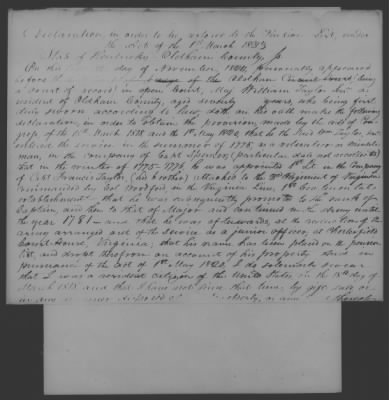 Declaration, in order to be restored to the Pension List, under
the Act of the 1st March 1823
State of Kentucky Oldham County, Sc.
On this day of November 1824, personally appeared
before the of the Oldham Circuit Court, (being
a Court of record) in open Court, Maj. William Taylor, a
resident of Oldham County, aged seventy years, who being first
duly sworn according to law doth on his oath make the following
declaration, in order to obtain the provision made by the acts of Con-
gress of the 18th March 1818 and the 1st May 1820, that he the said Wm. Taylor,
entered the service in the summer of 1775 as a volunteer or minute
man, in the company of Capt. Spencer (particular date not recollected)
that in the winter of 1775-1776 he was appointed 1st Lt. in the Company
of Capt. Francis Taylor (his brother) attached to the 2nd Regiment of Virginia
commanded by Col. Woodford in the Virginia line, Continental
establishment that he was subsequently promoted to the rank of
Captain, and then to that of Major and continued in the army until
the year 1781 and that he was afterwards, at the reduction of the
army arranged out of the service as a junior officer, at Chesterfield
Court-House, Virginia; that his name has been placed on the pension
list, and dropt therefrom on account of his property, in
pursuance of the act of 1st May 1820. I do solemnly swear
that I was a resident citizen of the United States on the 18th day of
March 1818 and that I have not since that time, by gift, sale or
in any manner disposed of